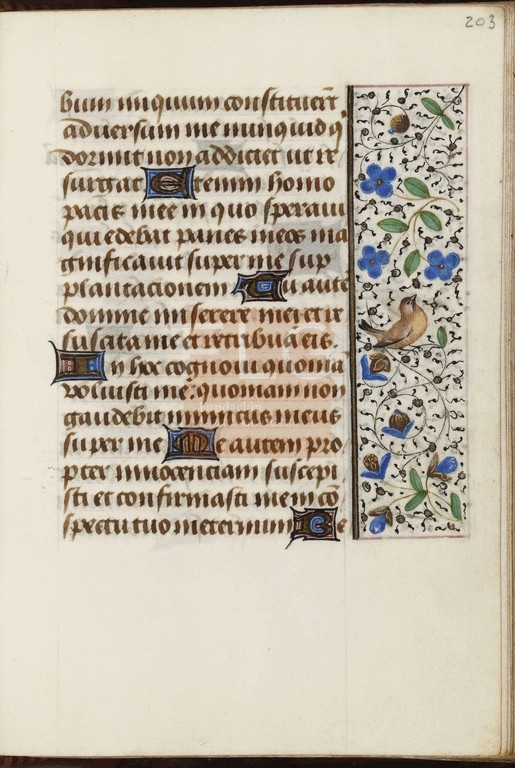 203
bum iniquum constituerūt
adversum me nunquid q
dormit non addiciet ut re
surgat Etenim homo
pacis mee in quo speravi
qui edebat panes meos ma
gnificavit super me sup
plantacionem Tu autē
domine miserere mei et re
suscita me et retribuā eis.
In hoc cognovi quonia
voluisti me: quoniam non
gaudebit inimicus meus
super me Me autem pro
pter innocenciam suscepi
sti et confirmasti me in cō
spectu tuo in eternum Be